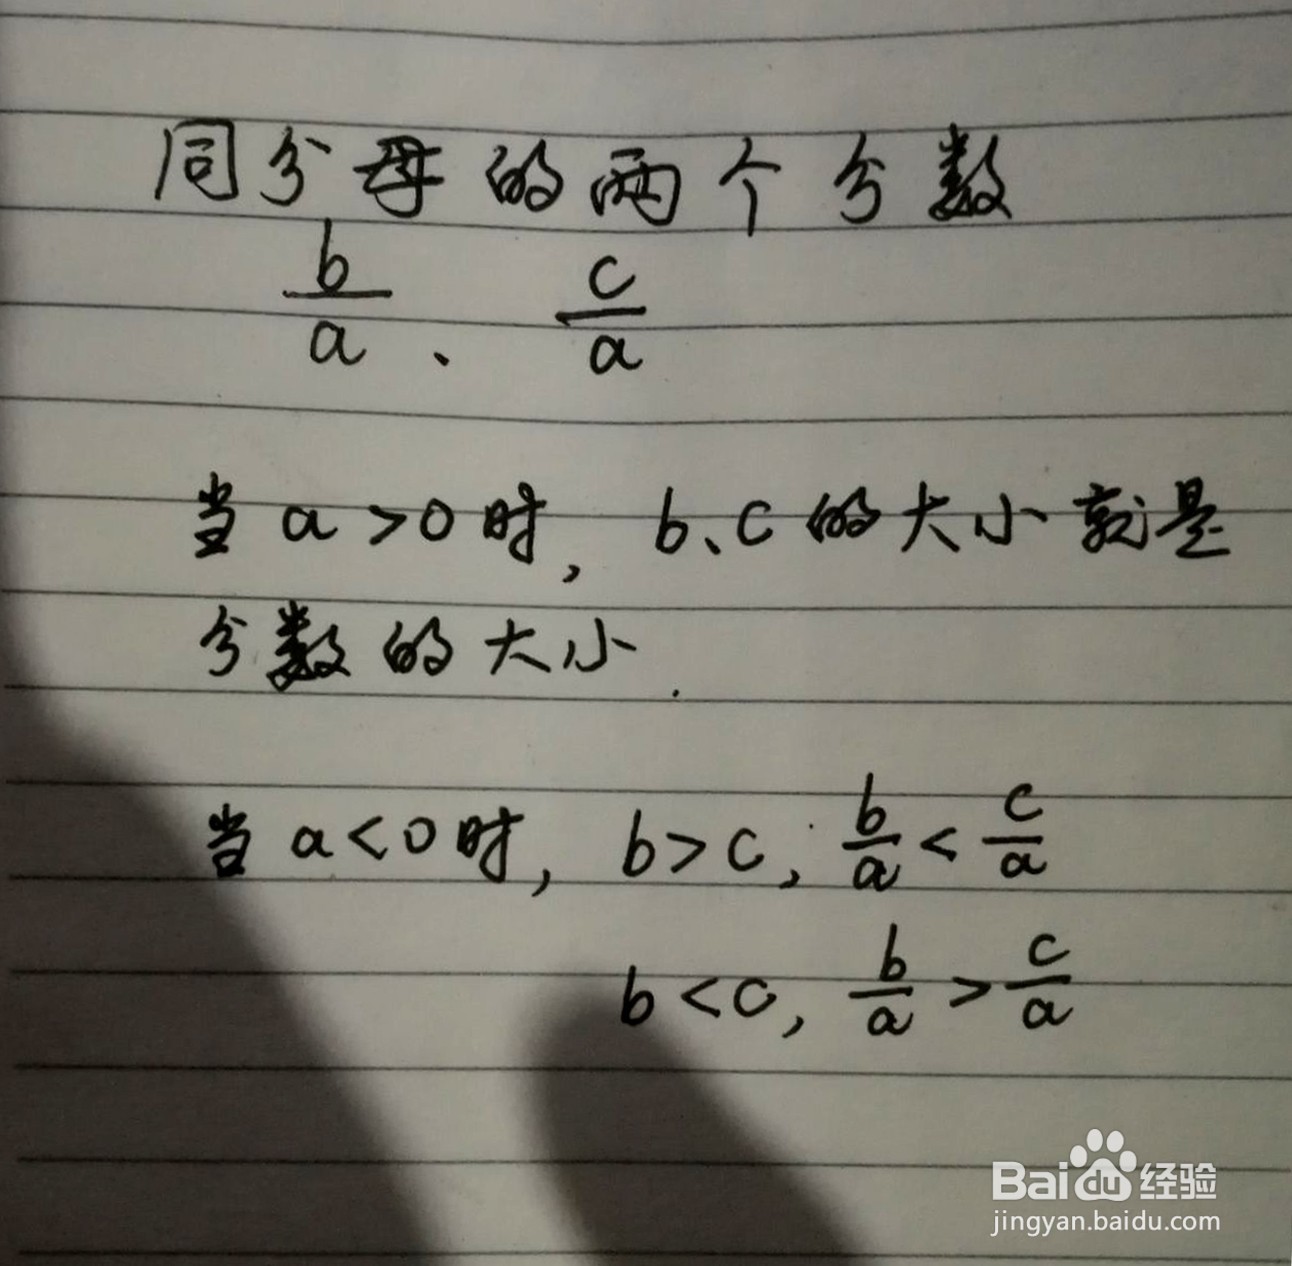 同分母的两个分数
b/a 、 c/a
当 a>0 时, b、c 的大小就是
分数的大小.
当 a<0 时, b>c, b/a < c/a
b<c, b/a > c/a
Bai du 经验
jingyan.baidu.com